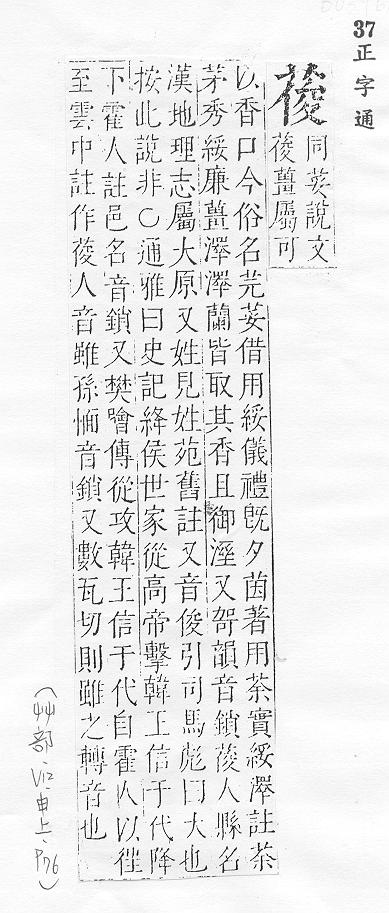 37正字通
葰
同荽說文
葰薑屬可
以香口今俗名芫荽借用綏儀禮旣夕茵著用荼實綏澤註荼
茅秀綏廉薑澤澤蘭皆取其香且御溼又哿韻音鎖葰人縣名
漢地理志屬大原又姓見姓苑舊註又音俊引司馬彪曰大也
按此說非○通雅曰史記絳侯世家從高帝擊韓王信于代降
下霍人註邑名音鎖又樊噲傳從攻韓王信于代自霍人以徃
至雲中註作葰人音雖孫愐音鎖又數瓦切則雖之轉音也
(艸部.112.申上.P76)